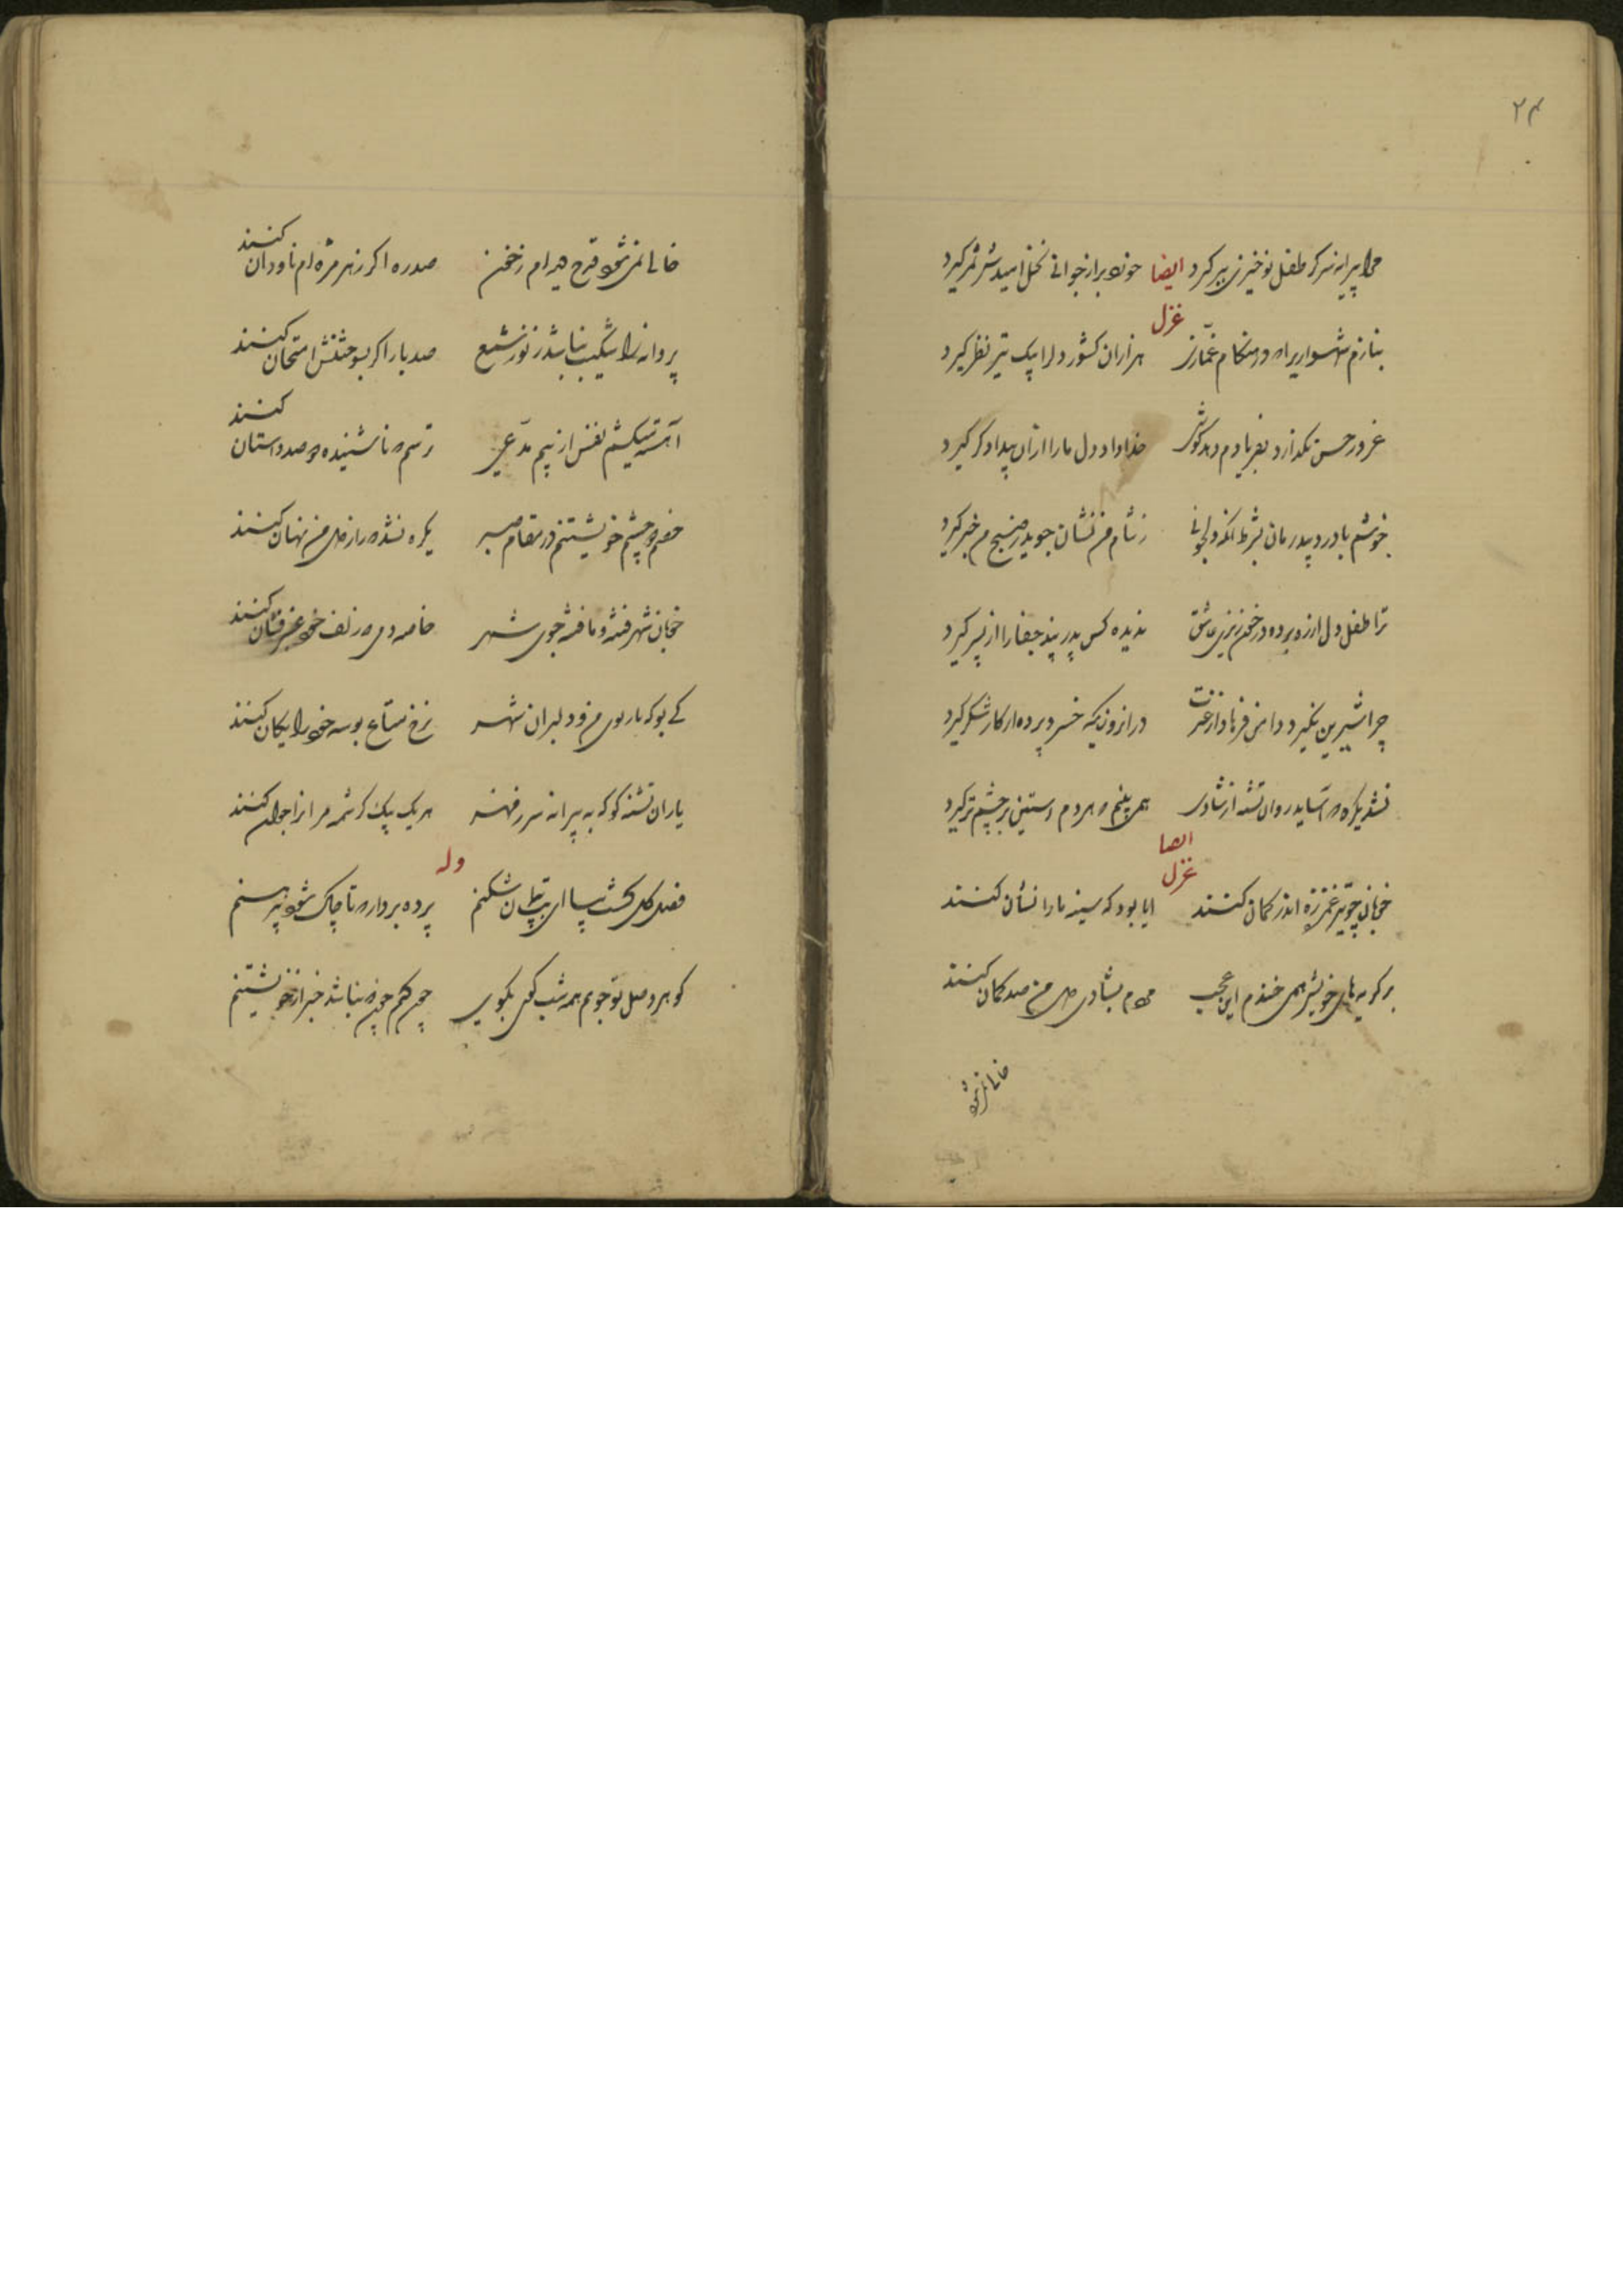 ۲۴
پیرانه سر کز طفل نوخیزی ببر گیرد ایضا خورد بر از جوانی نخل امیدش ثمر گیرد
غزل
بنازم شهسواریرا که در هنگام غمازی هزاران کشور دلرا بیک تیر نظر گیرد
غرور حسن نگذارد بفریادم دهد گوش خدا داد دل ما را از آن بیدادگر گیرد
خوشم با درد بیدرمان بشرط آنکه دلجوئی ز نام من نشان جوید ز رنج من خبر گیرد
ترا طفل دل از ره برده در خونریزی عاشق ندیده کس پدر پند جفا را از پسر گیرد
چرا شیرین نگیرد دامن فرهاد از عزت در آنروزیکه خسرو پرده از کار شکر گیرد
نشد یکره که آساید روان تشنه از شادی همی بینم که هر دم آستین بر چشم تر گیرد
ایضا
غزل
خوبان چو تیر غمزه اندر کمان کنند آیا بود که سینه ما را نشان کنند
بر گریه های خویش همی خندم این عجب مردم بشادی دل من صد گمان کنند
خالی نمیشود
خالی نمیشود قدح دیده ام ز خون صد ره اگر ز هر مژه ام ناودان کنند
پروانه را شکیب نباشد ز نور شمع صد بار اگر بسوختنش امتحان کنند
آهسته میکشم نفس از بیم مدعی ترسم که ناشنیده دو صد داستان کنند
خصم دو چشم خویشتنم در مقام صبر یکره نشد که راز دل من نهان کنند
خوبان شهر فتنه و ما فتنه جوی شهر خاصه دمی که زلف خود عنبرفشان کنند
کی بو که یاری من و دلبران شهر نرخ متاع بوسه خود رایگان کنند
یاران تشنه کو که به پیرانه سر هر یک بیک کرشمه مرا نوجوان کنند
وله
فصل گل گشت بیا ای بت پیمان شکنم پرده بردار که تا چاک شود پیرهنم
گوهر وصل تو جویم همه شب کوی بکوی چکنم چون نباشد خبر از خویشتنم